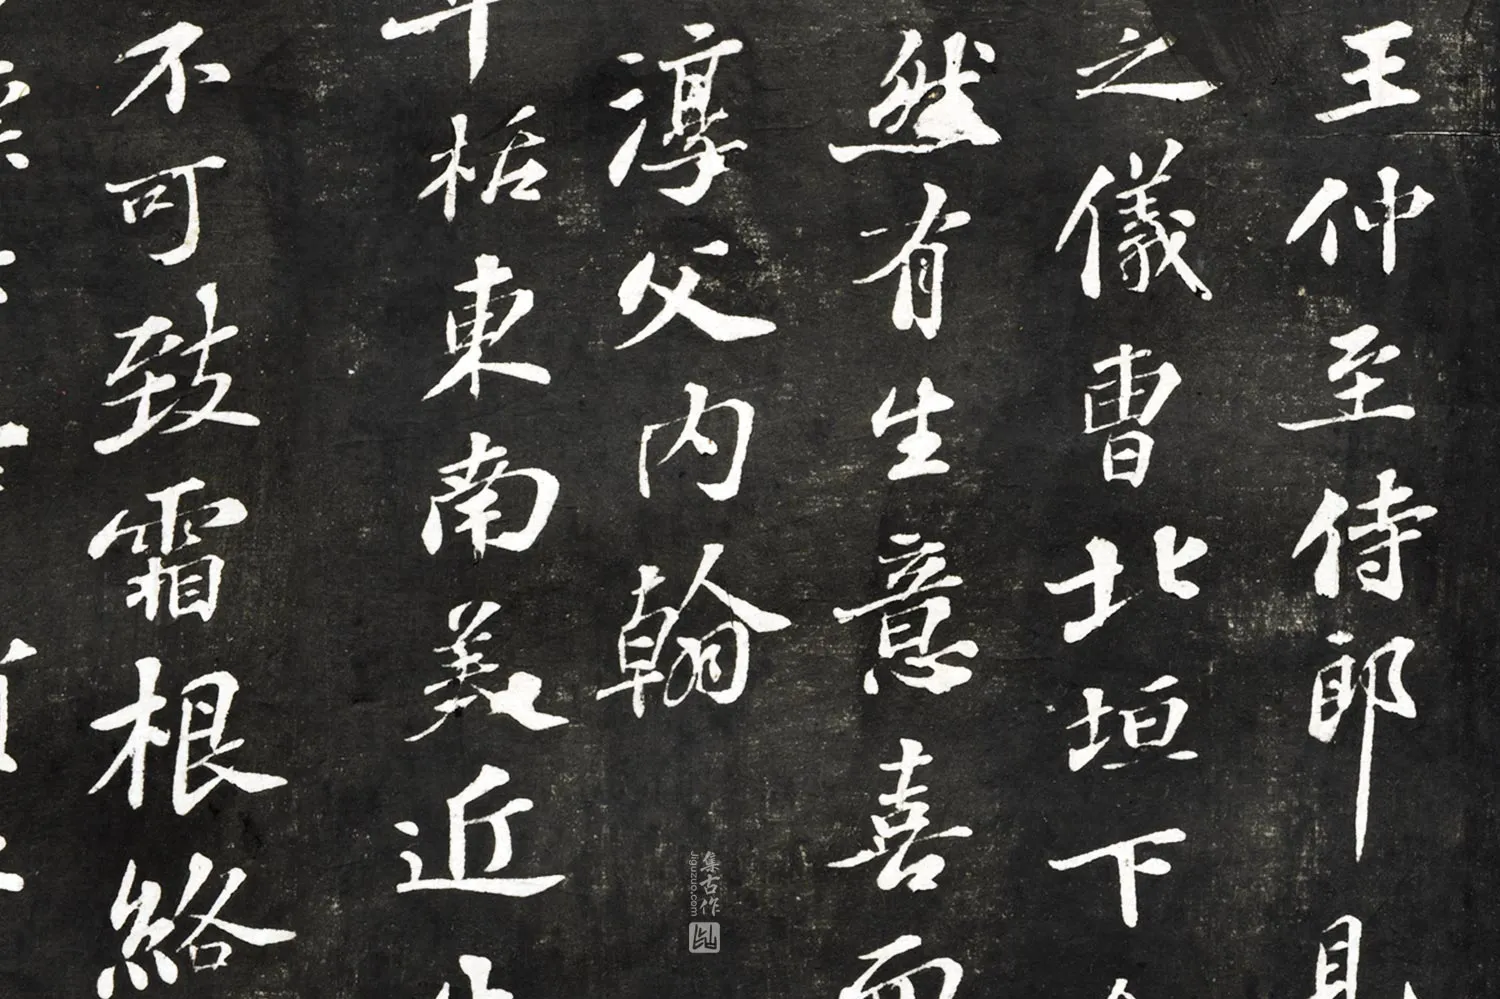 王仲至侍郎見
之儀曹北垣下
然有生意喜而
淳父内翰
栝東南美近
不可致霜根絡
集古作
jiguzuo.com